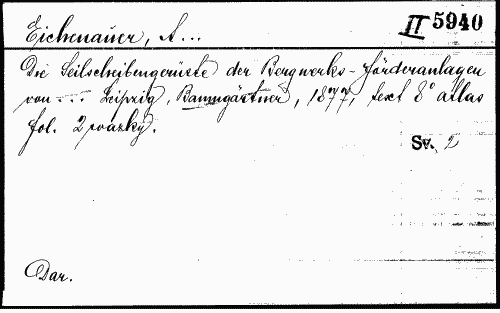 Eichenauer, A...
II 5940
Die Seilscheibengerüste der Bergwerks-Förderanlagen
von ... Leipzig, Baumgärtner, 1877, text 8° atlas
fol. 2 svazky.
Sv. 2
Dar.